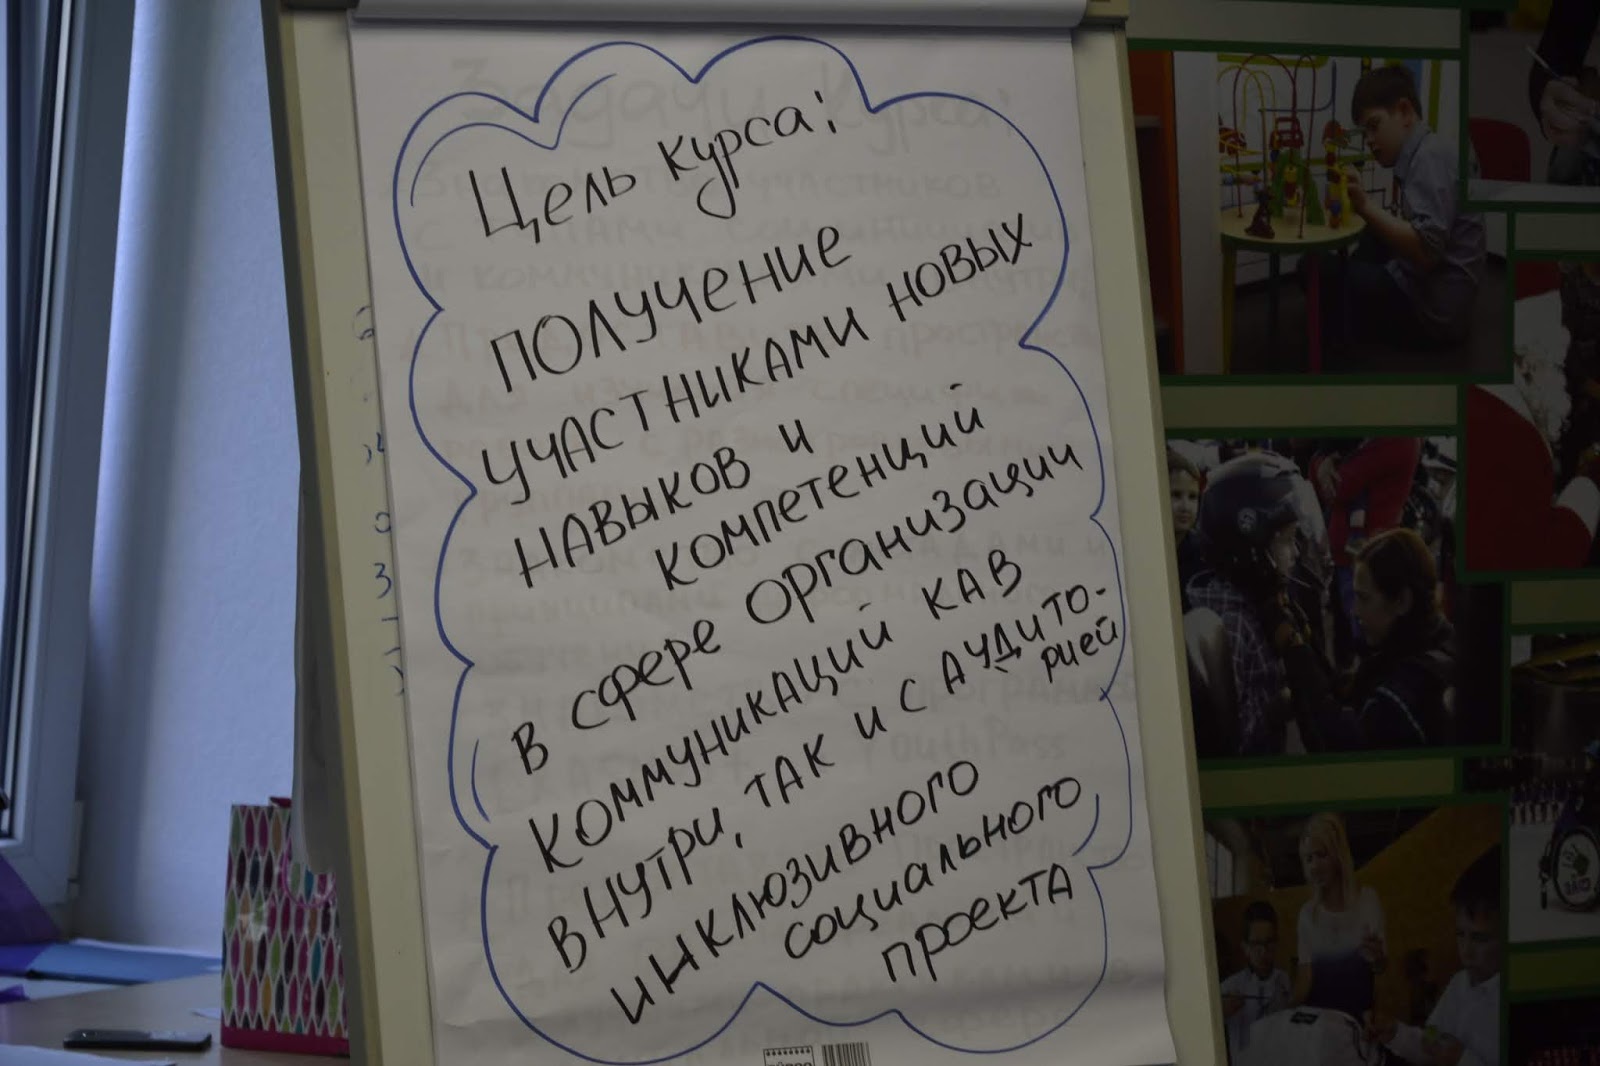 Цель курса:
ПОЛУЧЕНИЕ
УЧАСТНИКАМИ НОВЫХ
НАВЫКОВ И
КОМПЕТЕНЦИЙ
В СФЕРЕ ОРГАНИЗАЦИИ
КОММУНИКАЦИЙ КАВ
ВНУТРИ, ТАК И С АУДИТО-
РИЕЙ
ИНКЛЮЗИВНОГО
СОЦИАЛЬНОГО
ПРОЕКТА